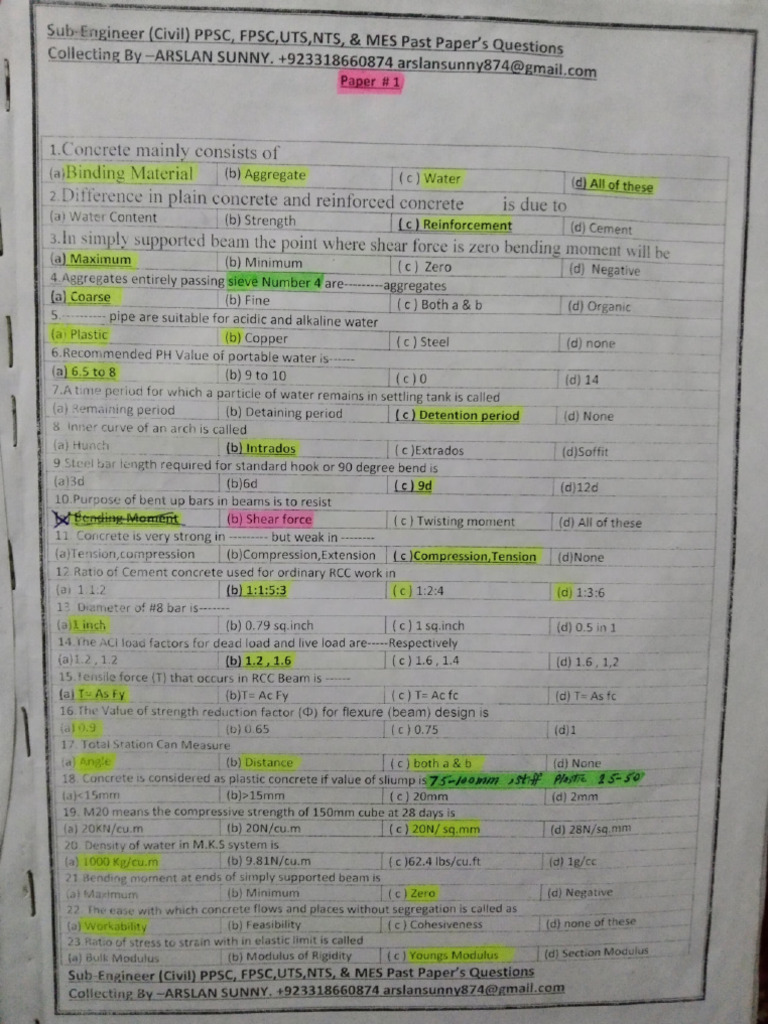 Sub-Engineer (Civil) PPSC, FPSC,UTS,NTS, & MES Past Paper's Questions
Collecting By –ARSLAN SUNNY. +923318660874 arslansunny874@gmail.com
Paper # 1
1.Concrete mainly consists of
(a)Binding Material (b) Aggregate ( c ) Water (d) All of these
2.Difference in plain concrete and reinforced concrete is due to
(a) Water Content (b) Strength ( c ) Reinforcement (d) Cement
3.In simply supported beam the point where shear force is zero bending moment will be
(a) Maximum (b) Minimum ( c ) Zero (d) Negative
4.Aggregates entirely passing sieve Number 4 are---------aggregates
(a) Coarse (b) Fine ( c ) Both a & b (d) Organic
5.---------- pipe are suitable for acidic and alkaline water
(a) Plastic (b) Copper ( c ) Steel (d) none
6.Recommended PH Value of portable water is------
(a) 6.5 to 8 (b) 9 to 10 ( c ) 0 (d) 14
7.A time period for which a particle of water remains in settling tank is called
(a) Remaining period (b) Detaining period ( c ) Detention period (d) None
8. Inner curve of an arch is called
(a) Hunch (b) Intrados ( c )Extrados (d)Soffit
9 Steel bar length required for standard hook or 90 degree bend is
(a)3d (b)6d ( c ) 9d (d)12d
10.Purpose of bent up bars in beams is to resist
Bending Moment (b) Shear force ( c ) Twisting moment (d) All of these
11. Concrete is very strong in --------- but weak in --------
(a)Tension,compression (b)Compression,Extension ( c )Compression,Tension (d)None
12.Ratio of Cement concrete used for ordinary RCC work in
(a) 1.1.2 (b) 1:1:5:3 ( c ) 1:2:4 (d) 1:3:6
13. Diameter of #8 bar is-------
(a)1 inch (b) 0.79 sq.inch ( c ) 1 sq.inch (d) 0.5 in 1
14.The ACI load factors for dead load and live load are-----Respectively
(a)1.2 , 1.2 (b) 1.2 , 1.6 ( c ) 1.6 , 1.4 (d) 1.6 , 1,2
15.Tensile force (T) that occurs in RCC Beam is ------
(a) T= As Fy (b)T= Ac Fy ( c ) T= Ac fc (d) T= As fc
16.The Value of strength reduction factor (Φ) for flexure (beam) design is
(a) 0.9 (b) 0.65 ( c ) 0.75 (d)1
17. Total Sration Can Measure
(a) Angle (b) Distance ( c ) both a & b (d) None
18. Concrete is considered as plastic concrete if value of sliump is 75-100mm , stiff Plastic 25-50
(a)<15mm (b)>15mm ( c ) 20mm (d) 2mm
19. M20 means the compressive strength of 150mm cube at 28 days is
(a) 20KN/cu.m (b) 20N/cu.m ( c ) 20N/ sq.mm (d) 28N/sq.mm
20. Density of water in M.K.S system is
(a) 1000 Kg/cu.m (b) 9.81N/cu.m ( c )62.4 lbs/cu.ft (d) 1g/cc
21.Bending moment at ends of simply supported beam is
(a) Maximum (b) Minimum ( c ) Zero (d) Negative
22. The ease with which concrete flows and places without segregation is called as
(a) Workability (b) Feasibility ( c ) Cohesiveness (d) none of these
23.Ratio of stress to strain with in elastic limit is called
(a) Bulk Modulus (b) Modulus of Rigidity ( c ) Youngs Modulus (d) Section Modulus
Sub-Engineer (Civil) PPSC, FPSC,UTS,NTS, & MES Past Paper's Questions
Collecting By –ARSLAN SUNNY. +923318660874 arslansunny874@gmail.com